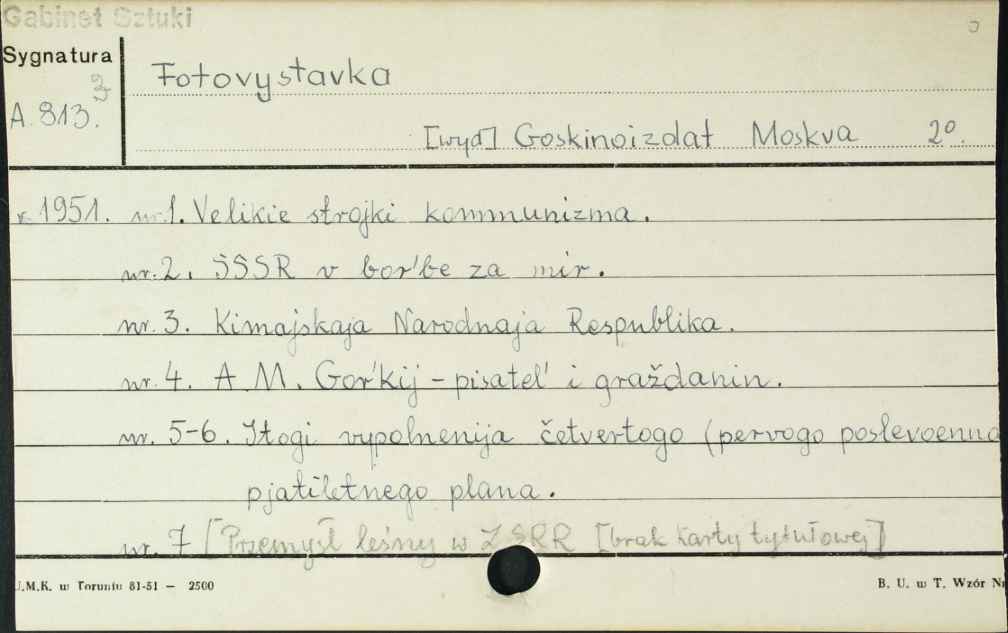 Gabinet Sztuki
Sygnatura
A.813.
Fotovystavka
[wyd] Goskinoizdat Moskva 2°.
r. 1951. nr. 1. Velikie strojki kommunizma.
nr. 2. SSSR v bor'be za mir.
nr. 3. Kimajskaja Narodnaja Respublika.
nr. 4. A M. Gor'kij – pisatel' i graždanin.
nr. 5-6. Itogi vypolnenija četvertogo (pervogo poslevoenno
pjatiletnego plana.
nr. 7 [Przemysł leśny w ZSRR [brak karty tytułowej]
U.M.K. w Toruniu 81-51 — 2500
B. U. w T. Wzór Nr